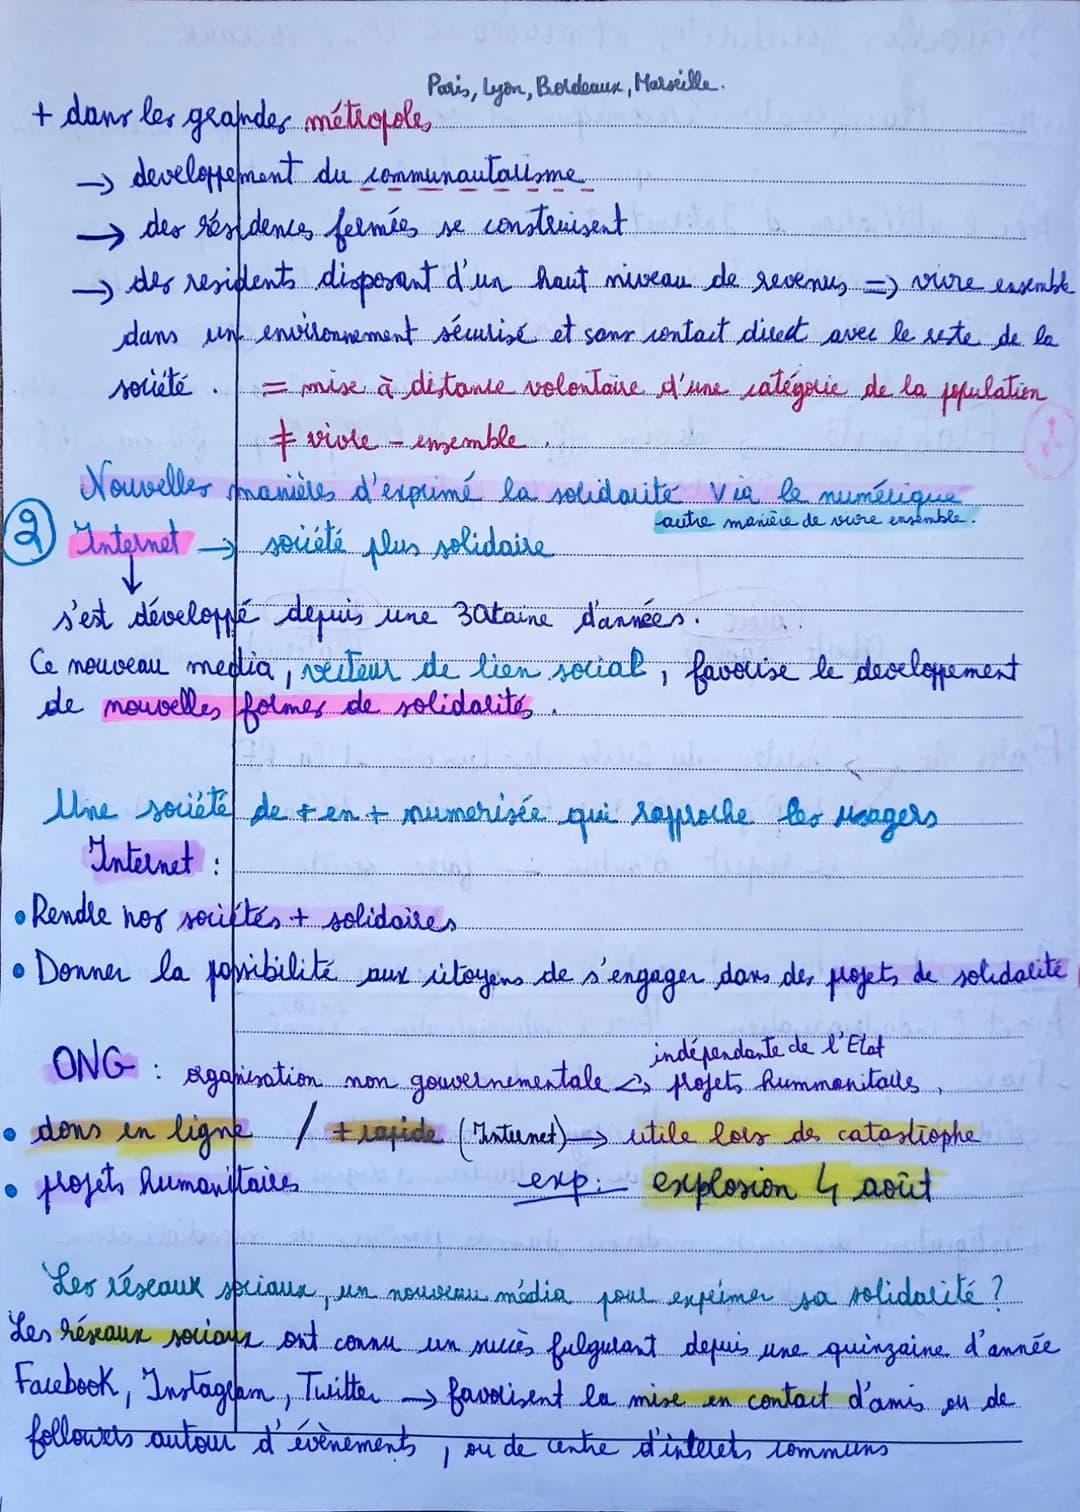 Paris, Lyon, Bordeaux, Marseille.
+ dans les grandes métropoles
→ developpement du communautarisme
→ des résidences fermées se construisent
→ des residents disposant d'un haut niveau de revenus => vivre ensemble
dans un environnement sécurisé et sans contact direct avec le reste de la
société.
= mise à distance volontaire d'une catégorie de la population
≠ vivre - ensemble.
Nouvelles manières d'exprimé la solidarité via le numérique
autre manière de vivre ensemble.
② Internet → société plus solidaire
↓
s'est développé depuis une 30taine d'années.
Ce nouveau media, vecteur de lien social, favorise le developpement
de nouvelles formes de solidarités.
Une société de + en + numerisée qui rapproche les usagers
Internet :
• Rendre nos sociétés + solidaires
• Donner la possibilité aux citoyens de s'engager dans des projets de solidarité
indépendante de l'Etat
ONG : organisation non gouvernementale projets hummanitaires,
• dons en ligne / + rapide (Internet) → utile lors des catastrophe
• projets humanitaires exp: explosion 4 août
Les réseaux sociaux, un nouveau média pour exprimer sa solidarité ?
Les réseaux sociaux ont connu un succès fulgurant depuis une quinzaine d'année
Facebook, Instagram, Twitter → favorisent la mise en contact d'amis ou de
followers autour d'évènements, ou de centre d'interets communs